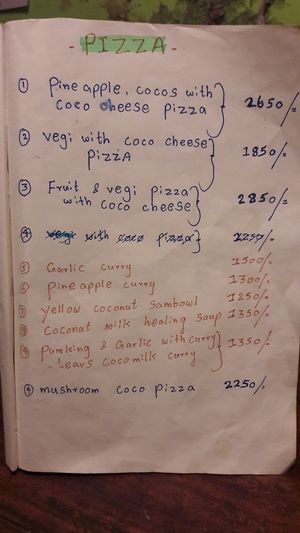 - PIZZA -
① Pine apple, cocos with
coco cheese pizza } 2650/-
② vegi with coco cheese
PIZZA } 1850/-
③ Fruit & vegi pizza
with coco cheese } 2850/-
④ vegi with coco pizza } 2250/-
⑤ Garlic curry 1500/-
⑥ pine apple curry 1300/-
⑦ yellow coconut sambowl 1250/-
⑧ coconut milk healing soup 1350/-
⑨ Pumking & Garlic with curry
- leavs coco milk curry } 1350/-
④ mushroom coco pizza 2250/-